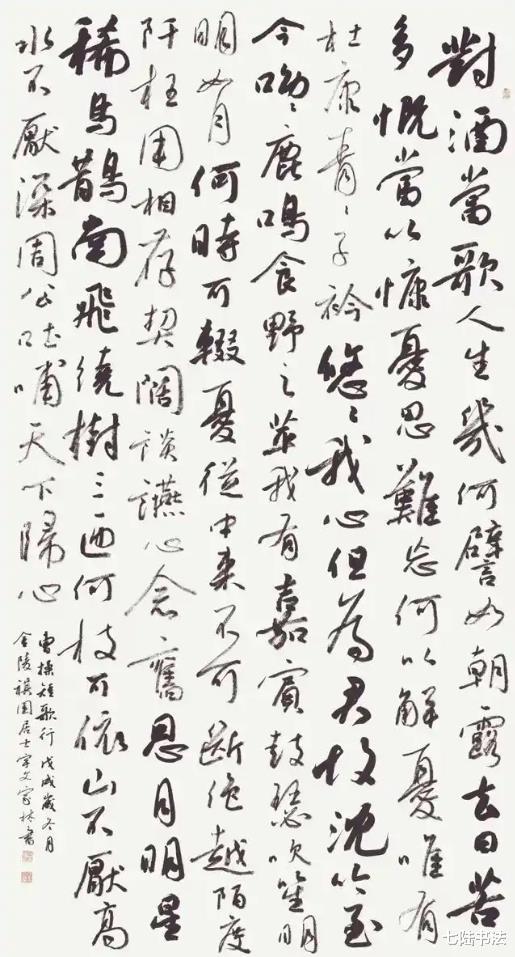 對酒當歌人生幾何譬如朝露去日苦
多慨當以慷憂思難忘何以解憂唯有
杜康青〻子衿悠〻我心但為君故沈吟至
今呦〻鹿鳴食野之苹我有嘉賓鼓瑟吹笙明
明如月何時可輟憂從中來不可斷絕越陌度
阡枉用相存契闊談讌心念舊恩月明星
稀烏鵲南飛繞樹三匝何枝可依山不厭高
水不厭深周公吐哺天下歸心
曹操短歌行戊戌歲冬月
金陵園居士宋文家林書
七陆书法